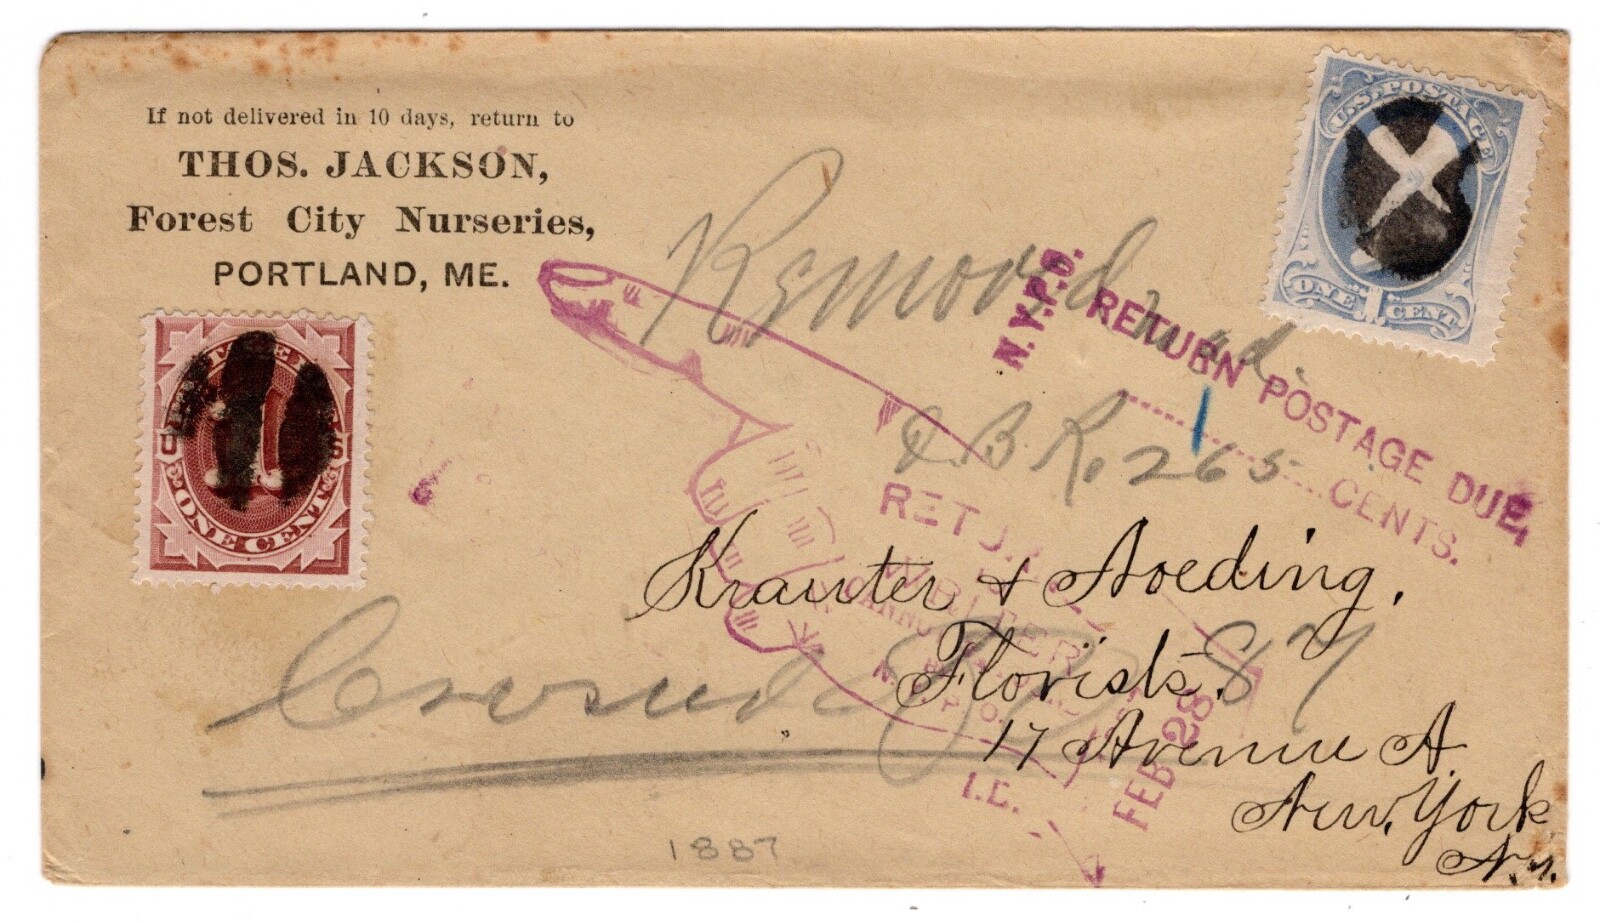 If not delivered in 10 days, return to
THOS. JACKSON,
Forest City Nurseries,
PORTLAND, ME.
U.S. POSTAGE
ONE 1 CENT
ONE CENT
U S
Removed
N.Y.P.O.
RETURN POSTAGE DUE,
1 CENTS.
265
RET
WRITER
CANNOT
N.Y.P.O.
I.D.
FEB 28
87
Krauter & Noeding,
Florists.
17 Avenue A
New York
N.Y.
1887